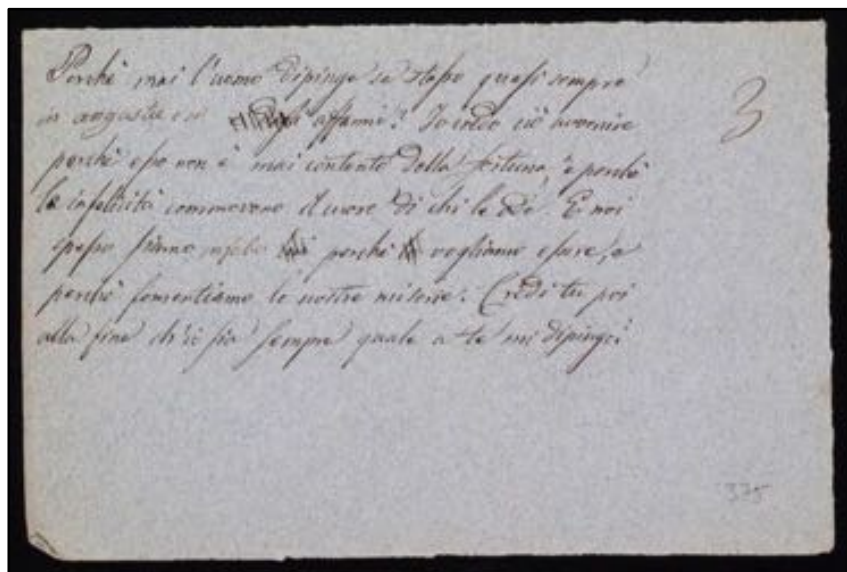 Perchè mai l'uomo dipinge se stesso quasi sempre
3
in angustie e affanni? Io credo ciò avvenire
perchè esso non è mai contento della fortuna, e perchè
le infelicità commovono il cuore di chi le . E noi
spesso siamo infelici perchè vogliamo essere, e
perchè fomentiamo le nostre miserie. Credi tu poi
alla fine ch'io sia sempre quale a te mi dipingo?
375